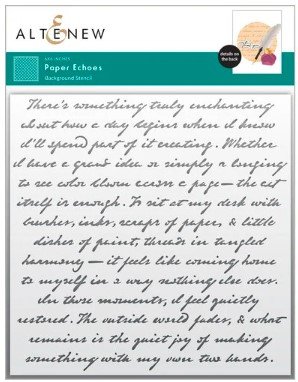 ALTENEW
6X6 INCHES
Paper Echoes
Background Stencil
details on the back
There's something truly enchanting
about how a day begins when I know
I'll spend part of it creating. Whether
I have a grand idea or simply a longing
to see color bloom across a page—the act
itself is enough. To sit at my desk with
brushes, inks, scraps of paper, & little
dishes of paint, threads in tangled
harmony—it feels like coming home
to myself in a way nothing else does.
In those moments, I feel quietly
restored. The outside world fades, & what
remains is the quiet joy of making
something with my own two hands.